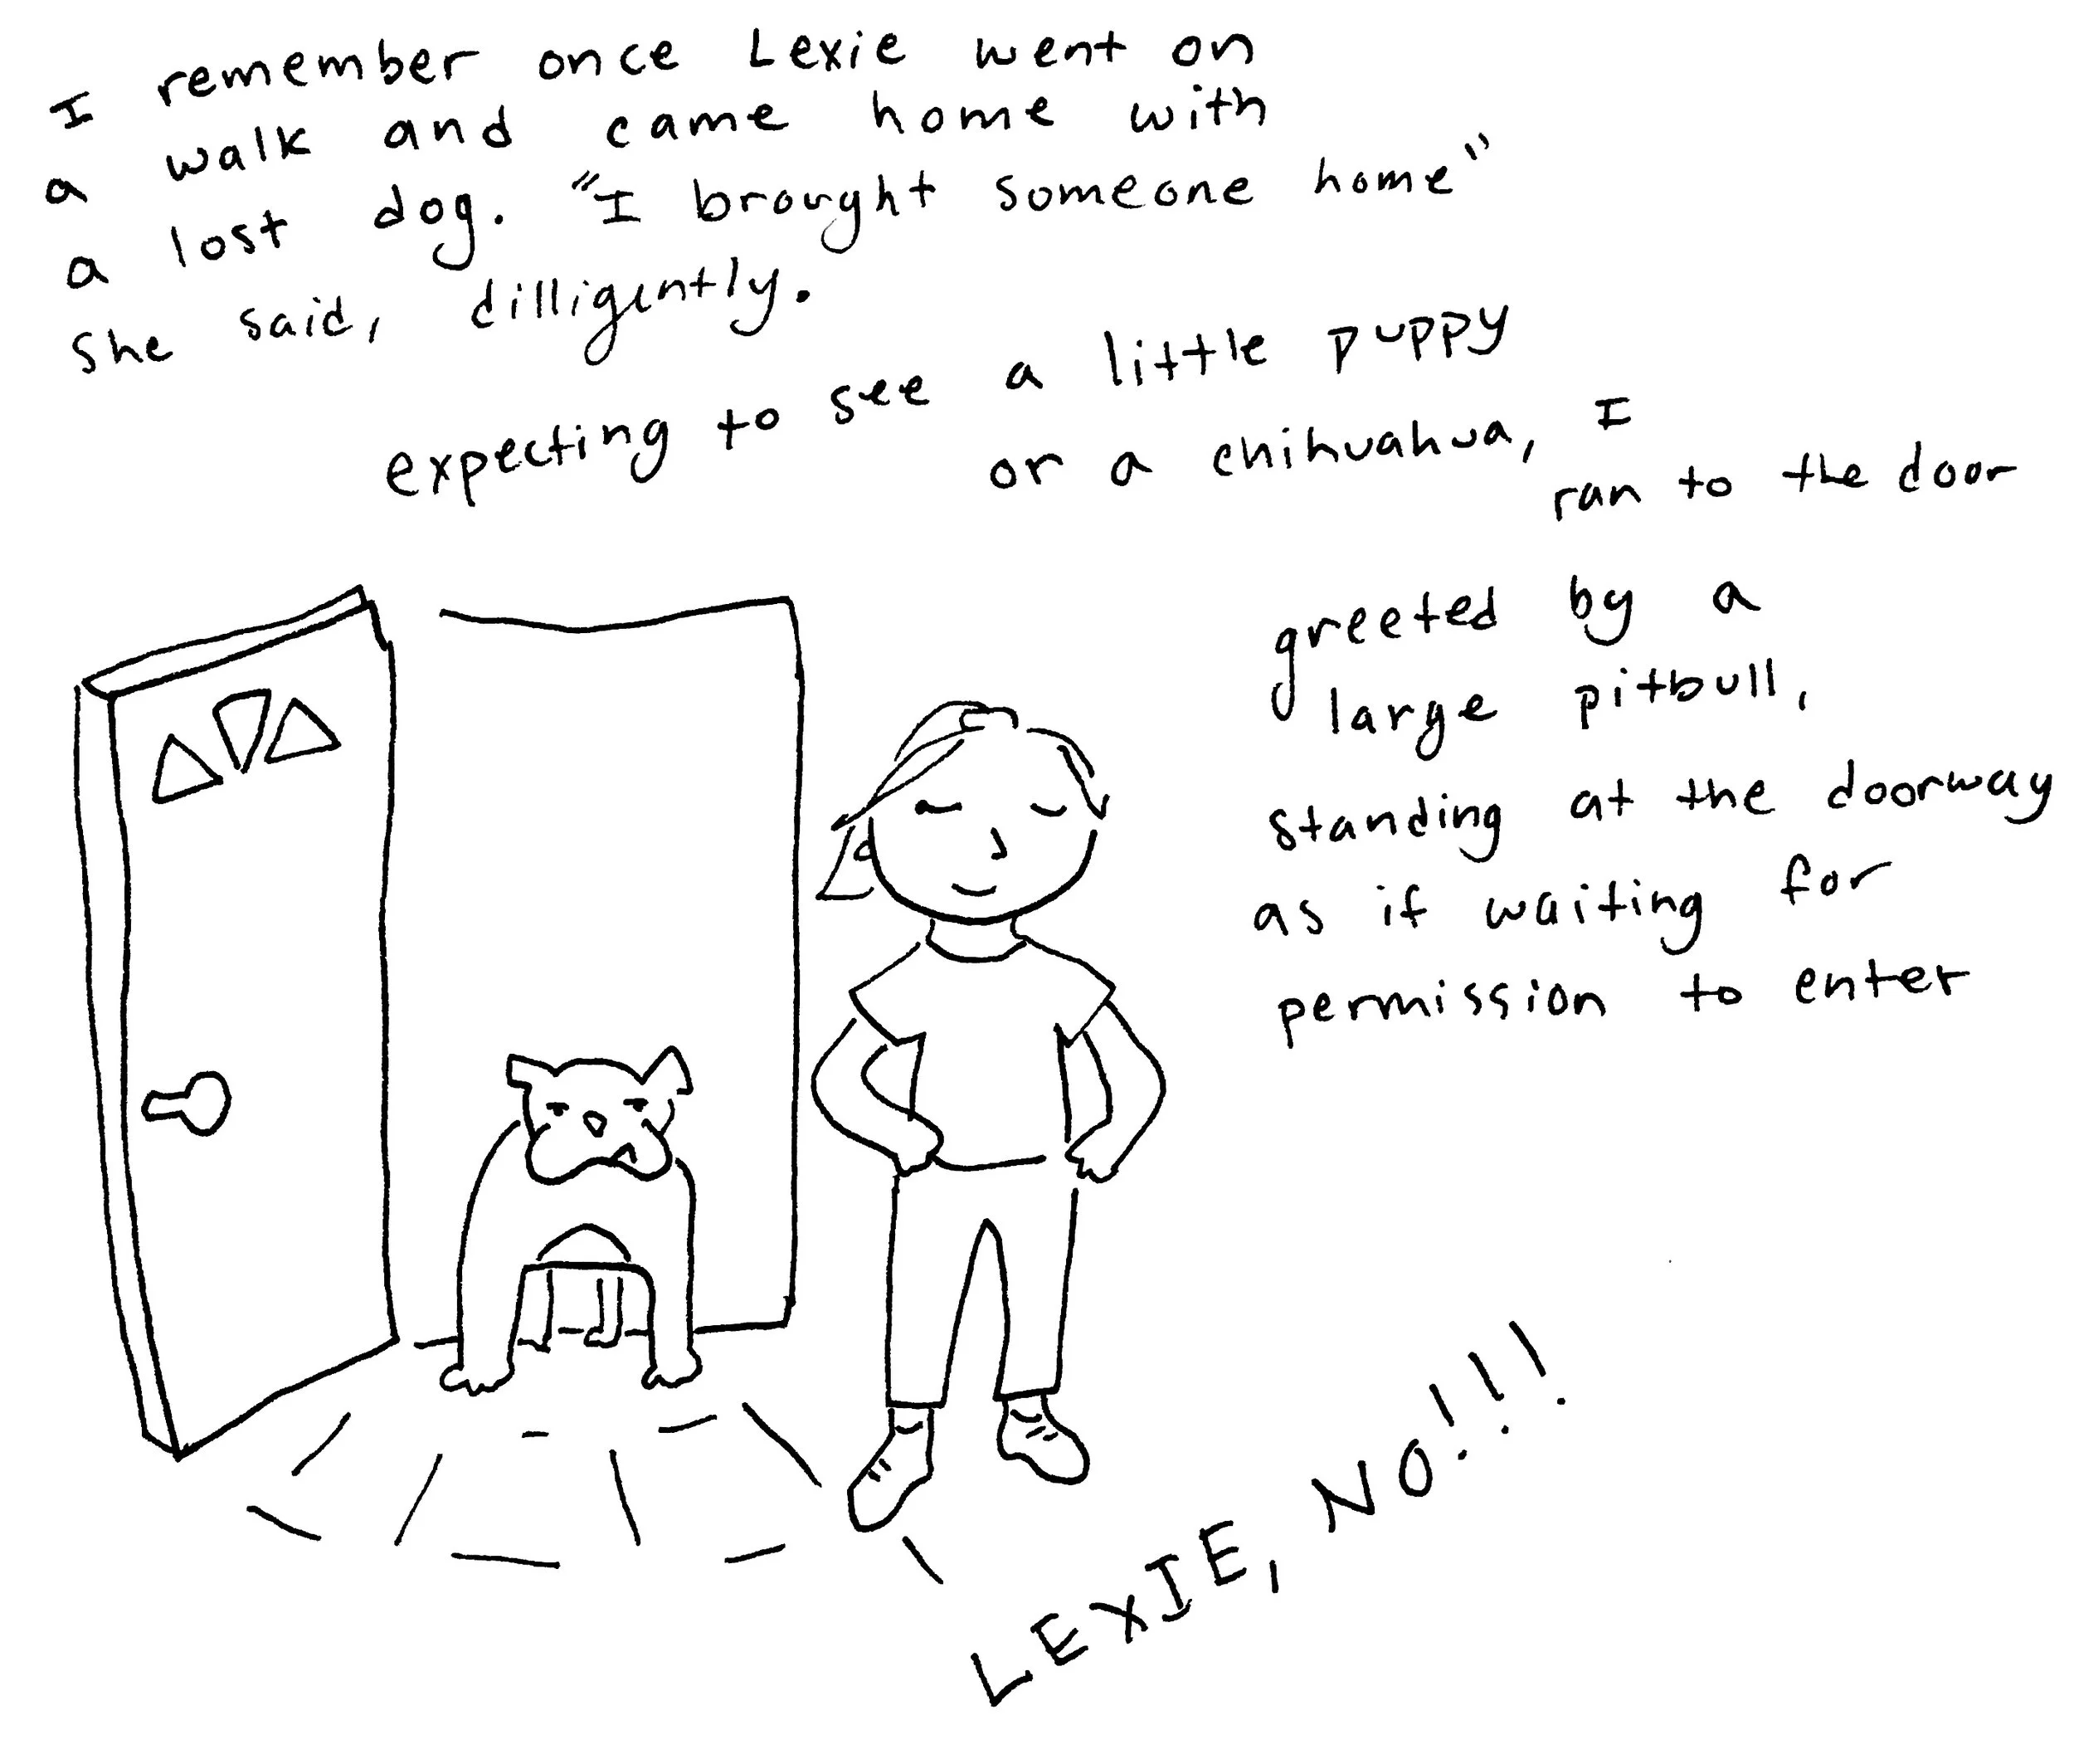 I remember once Lexie went on
a walk and came home with
a lost dog. "I brought someone home"
she said, dilligently.
expecting to see a little puppy
or a chihuahua, I
ran to the door
greeted by a
large pitbull,
standing at the doorway
as if waiting for
permission to enter
LEXIE, NO!!!